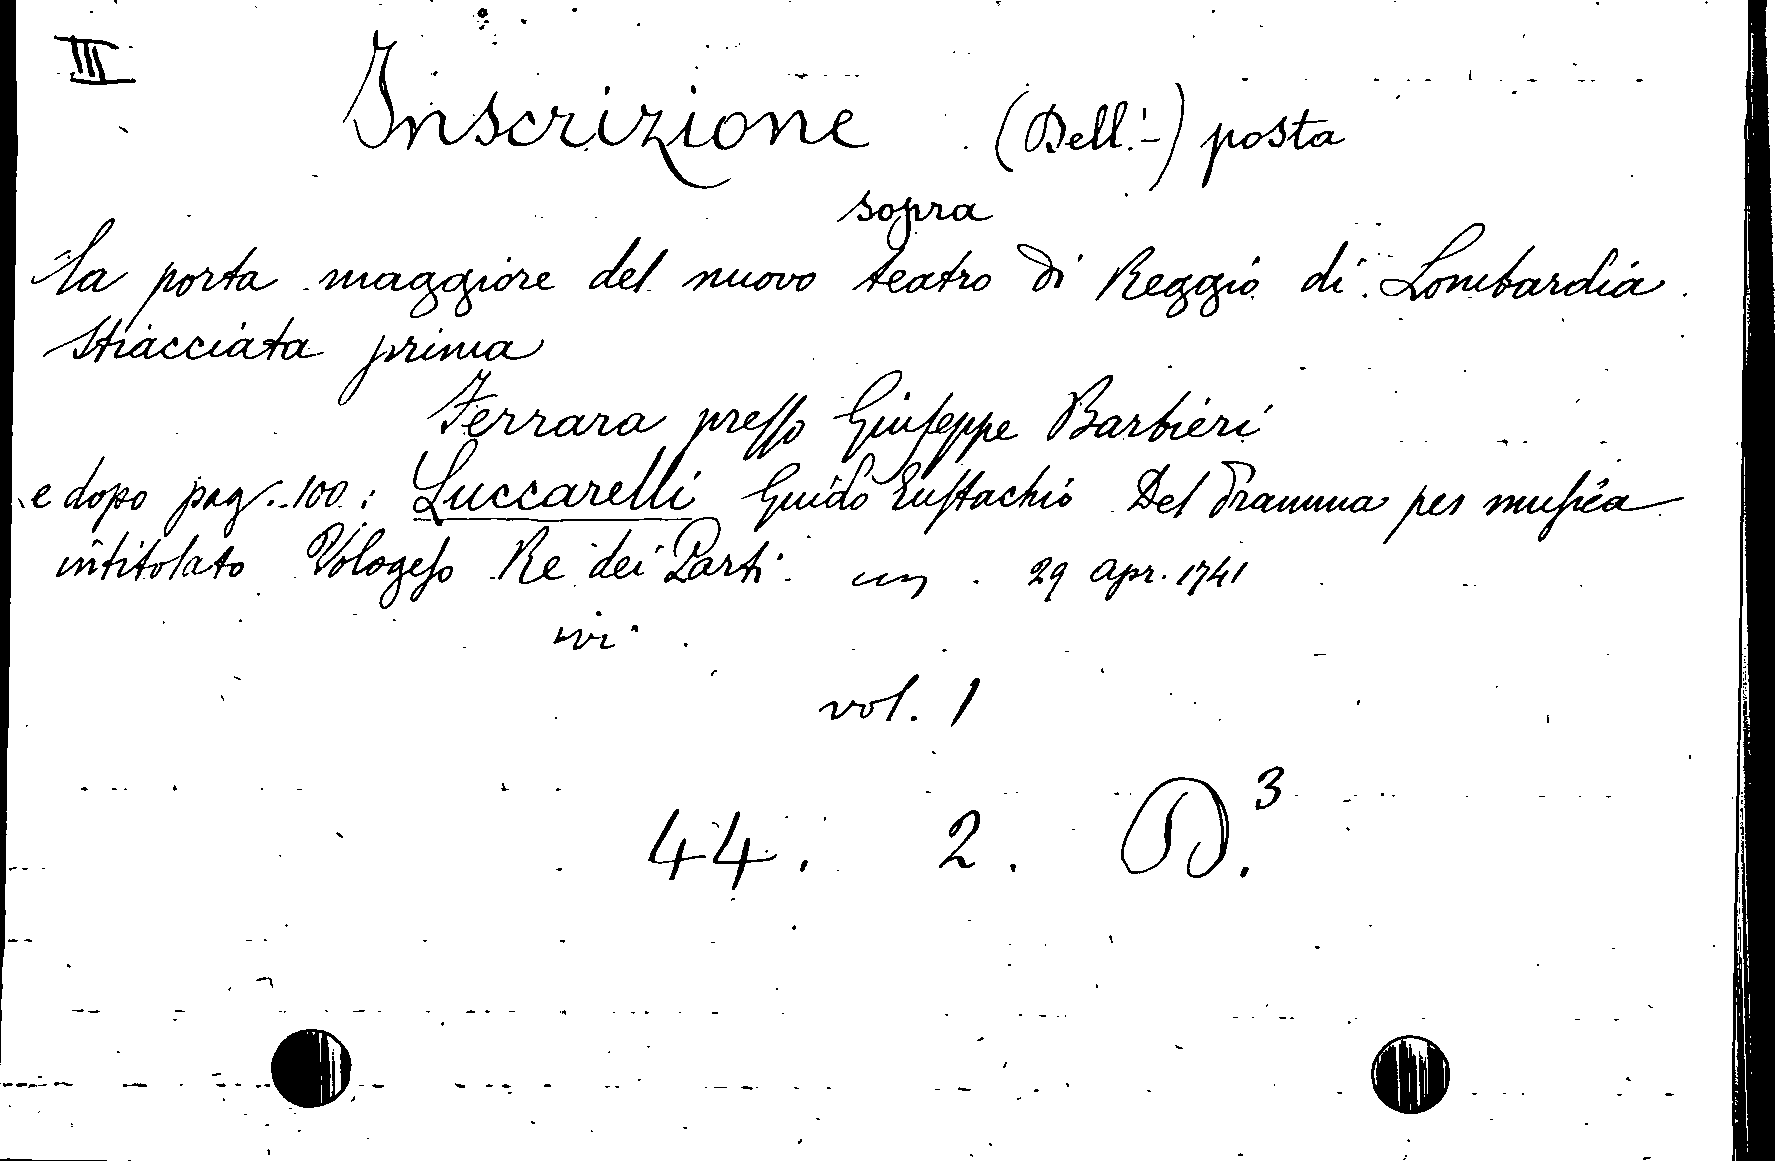 III
Inscrizione (Dell'-) posta
sopra
la porta maggiore del nuovo teatro di Reggio di Lombardia
Stiacciata prima
Ferrara presso Giuseppe Barbieri
e dopo pag. 100: Luccarelli Guido Eustachio Del dramma per musica
intitolato Vologeso Re dei Parti 29 apr. 1741
ivi
vol. 1
44. 2. D.3